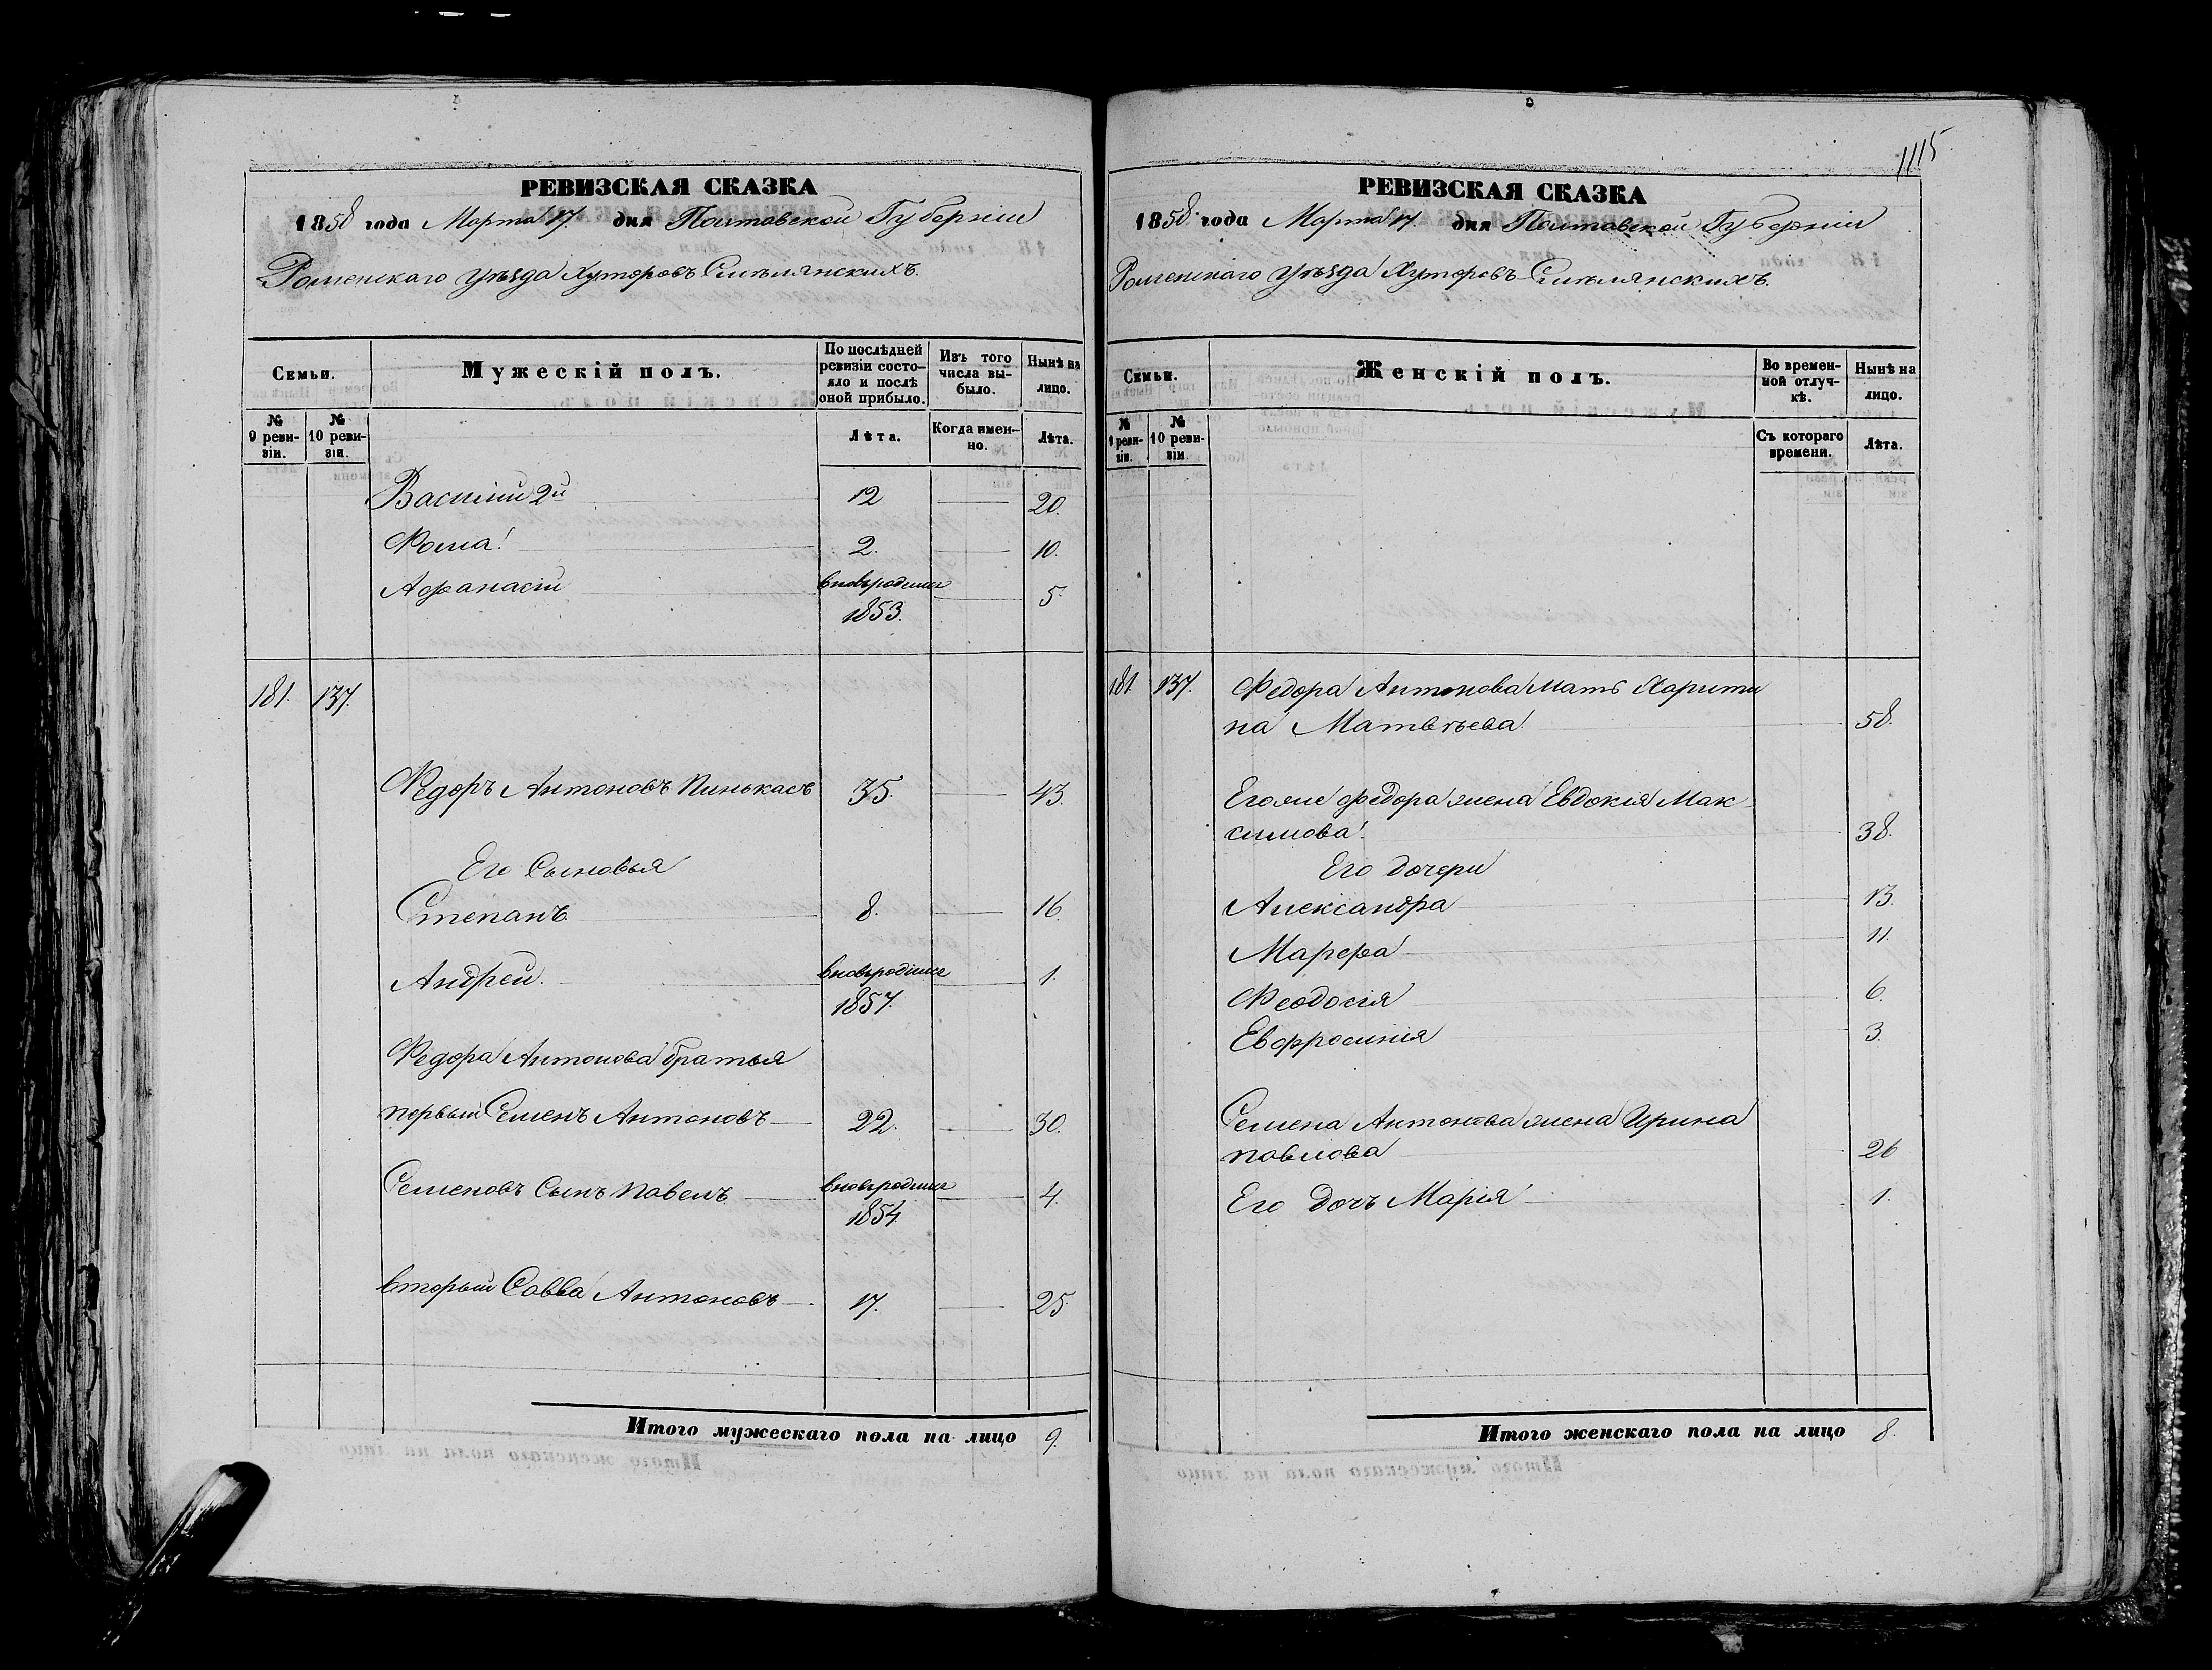 1115
РЕВИЗСКАЯ СКАЗКА
1858 года Марта 17. дня Полтавской Губерніи
Роменскаго уѣзда Хуторовъ Смѣлянскихъ.
Семьи.
Мужескій полъ.
По послѣдней ревизіи состо-
яло и послѣ оной прибыло.
Изъ того числа вы-
было.
Нынѣ на лицо.
№ 9 реви-
зіи.
№ 10 реви-
зіи.
Лѣта.
Когда имен-
но.
Лѣта.
Василій 2й 12 20.
Фома 2. 10.
Афанасій вновьродился 1853. 5.
181. 137.
Федоръ Антоновъ Пинькасъ 35. 43.
Его Сыновья
Степанъ 8. 16.
Андрей. вновьродился 1857. 1.
Федора Антонова братья
первый Семенъ Антоновъ 22. 30.
Семеновъ Сынъ Павелъ вновьродился 1854. 4.
вторый Савва Антоновъ 17. 25.
Итого мужескаго пола на лицо 9.
РЕВИЗСКАЯ СКАЗКА
1858 года Марта 17. дня Полтавской Губерніи
Роменскаго уѣзда Хуторовъ Смѣлянскихъ.
Семьи.
Женскій полъ.
Во времен-
ной отлуч-
кѣ.
Нынѣ на лицо.
№ 9 реви-
зіи.
№ 10 реви-
зіи
Съ котораго времени.
Лѣта.
181. 137. Федора Антонова Мать Харити
на Матвѣева 58.
Егоже Федора жена Евдокія Мак
симова. 38.
Его дочери
Александра 13.
Марфа 11.
Феодосія 6.
Евфросинія 3.
Семена Антонова жена Ирина
павлова 26
Его Дочь Марія 1.
Итого женскаго пола на лицо 8.